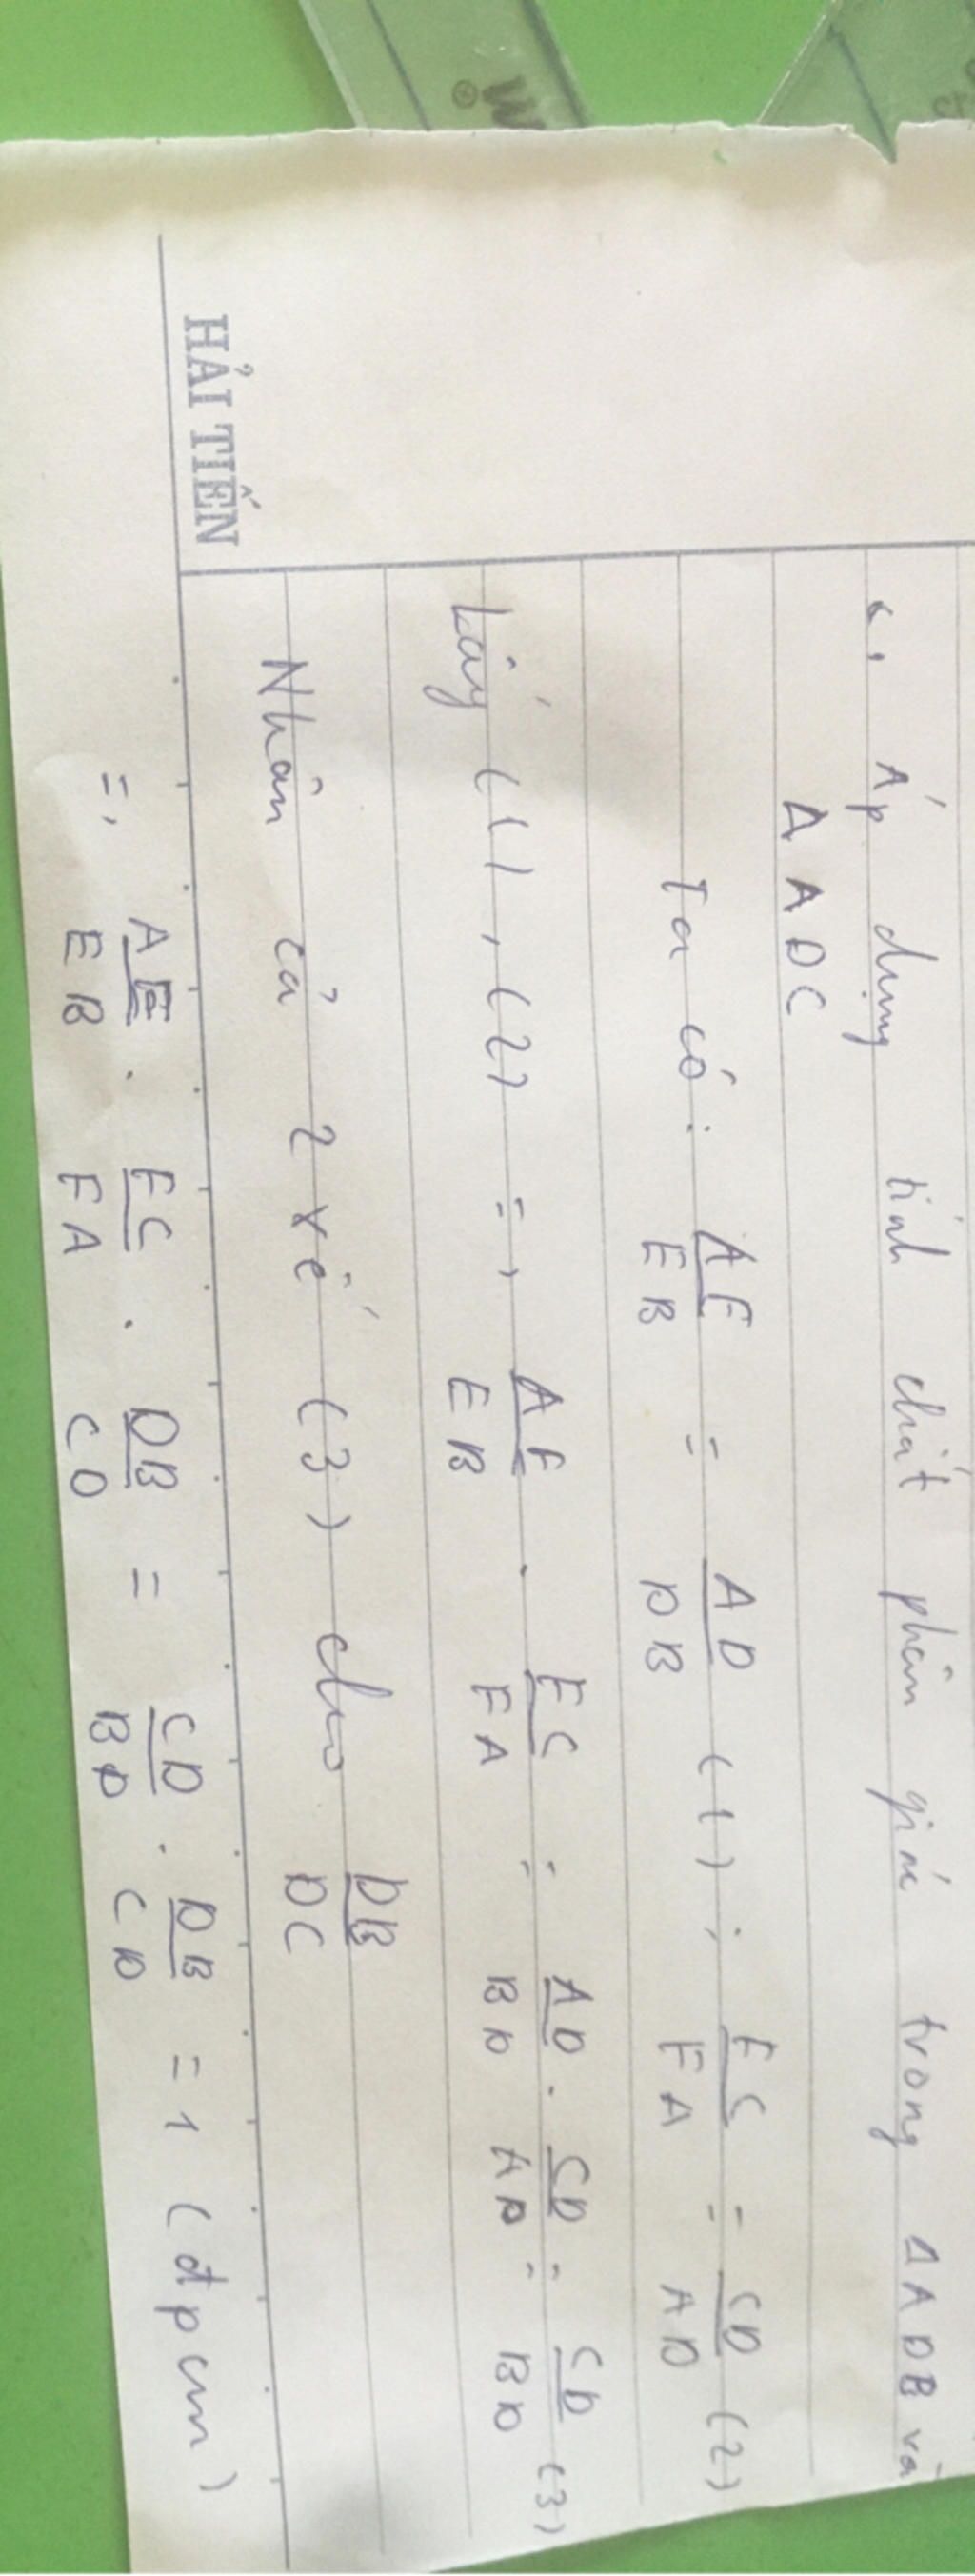 c, Áp dụng tính chất phân giác trong Δ ADB và
Δ ADC
Ta có: AE/EB = AD/DB (1); FC/FA = CD/AD (2)
Lấy (1), (2) => AE/EB . FC/FA = AD/BD . CD/AD = CD/BD (3)
Nhân cả 2 vế (3) cho DB/DC
=> AE/EB . FC/FA . DB/CD = CD/BD . DB/CD = 1 (đpcm)
HẢI TIẾN